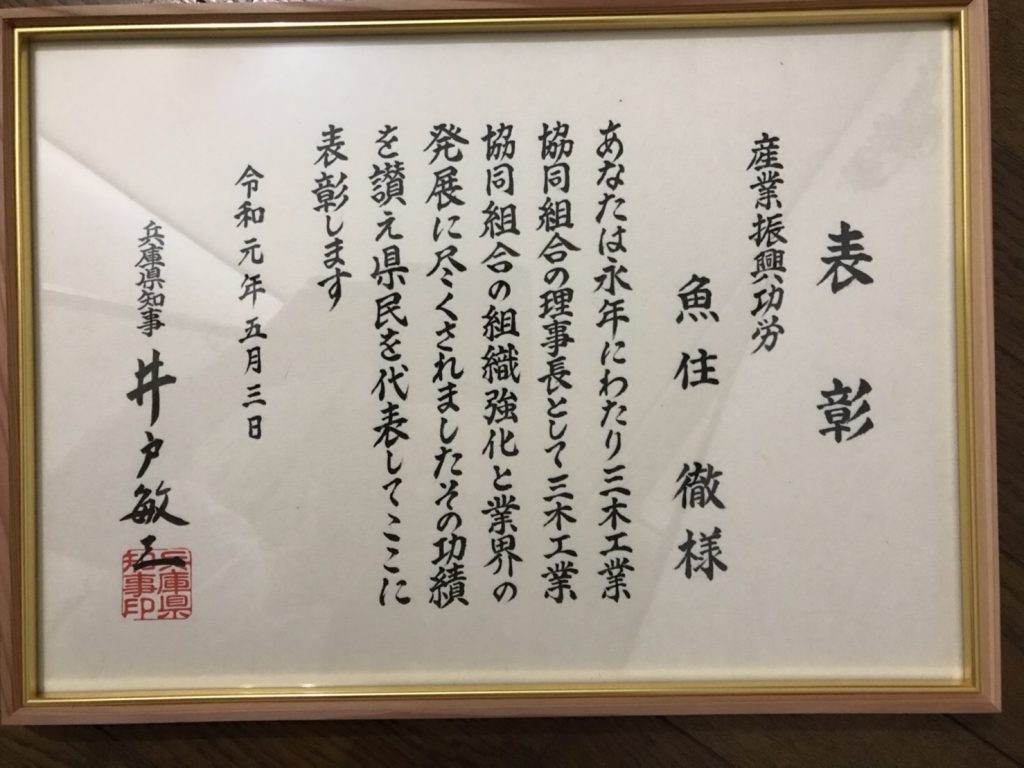 表彰
産業振興功労
魚住徹様
あなたは永年にわたり三木工業
協同組合の理事長として三木工業
協同組合の組織強化と業界の
発展に尽くされましたその功績
を讃え県民を代表してここに
表彰します
令和元年五月三日
兵庫県知事 井戸敏三
兵庫県
知事印